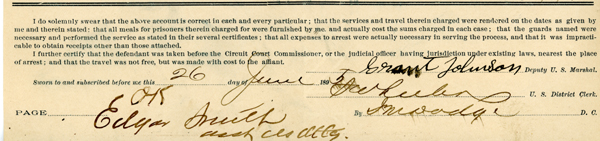 I do solemnly swear that the above account is correct in each and every particular; that the services and travel therein charged were rendered on the dates as given by
me and therein stated: that all meals for prisoners therein charged for were furnished by me, and actually cost the sums charged in each case; that the guards named were
necessary and performed the service as stated in their several certificates; that all expenses to arrest were actually necessary in serving the process, and that it was impracti-
cable to obtain receipts other than those attached.
I further certify that the defendant was taken before the Circuit Court Commissioner, or the judicial officer having jurisdiction under existing laws, nearest the place
of arrest; and that the travel was not free, but was made with cost to the affiant.
Grant Johnson Deputy U. S. Marshal.
Sworn to and subscribed before me this 26 day of June 189
U. S. District Clerk.
OK
PAGE By D. C.
Edgar Smith
asst US Atty.